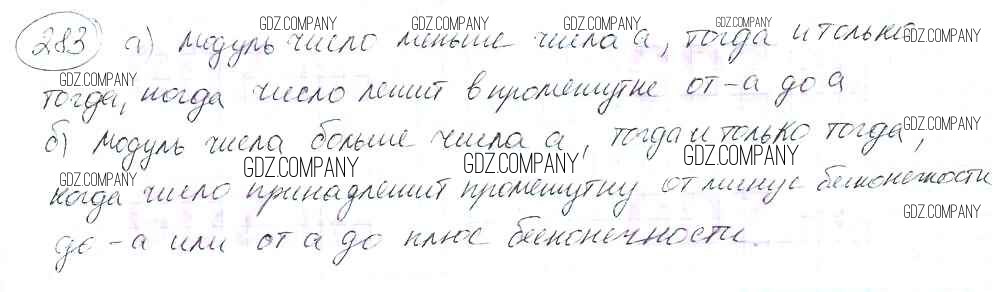 283 а) Модуль число меньше числа а, тогда и только
тогда, когда число лежит в промежутке от -а до а
б) Модуль числа больше числа а, тогда и только тогда,
когда число принадлежит промежутку от минус бесконечности
до -а или от а до плюс бесконечности.
GDZ.COMPANY
GDZ.COMPANY
GDZ.COMPANY
GDZ.COMPANY
GDZ.COMPANY
GDZ.COMPANY
GDZ.COMPANY
GDZ.COMPANY
GDZ.COMPANY
GDZ.COMPANY
GDZ.COMPANY
GDZ.COMPANY